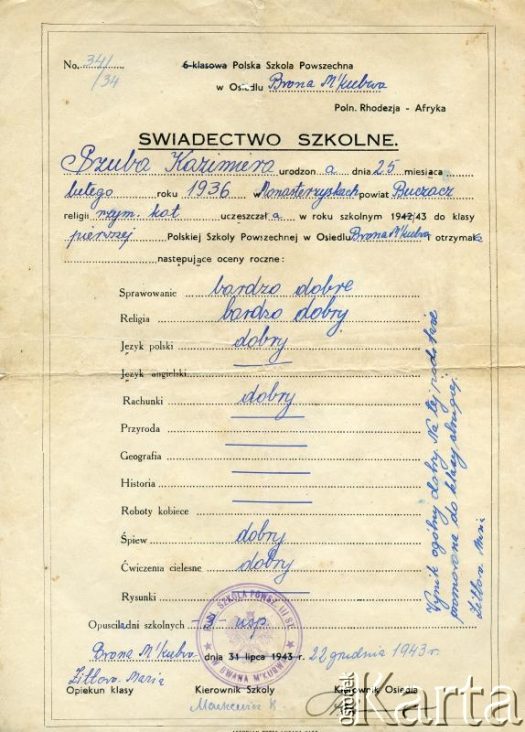 No. 341/34
6-klasowa Polska Szkoła Powszechna
w Osiedlu Bwana M'kubwa
Poln. Rhodezja - Afryka
SWIADECTWO SZKOLNE.
Szuba Kazimiera urodzon a dnia 25 miesiąca
lutego roku 1936 w Monasterzyskach powiat Buczacz
religii rzym. kat uczęszczał a w roku szkolnym 1942/43 do klasy
pierwszej Polskiej Szkoły Powszechnej w Osiedlu Bwana M'kubwa i otrzymała
następujące oceny roczne:
Sprawowanie bardzo dobre
Religia bardzo dobry
Język polski dobry
Język angielski
Rachunki dobry
Przyroda
Geografia
Historia
Roboty kobiece
Śpiew dobry
Ćwiczenia cielesne dobry
Rysunki
Wynik ogólny dobry. Na tej podstawie
promowana do klasy drugiej.
Maria
Opuscił dni szkolnych - 3 - usp.
Bwana M'kubwa dnia 31 lipca 1943 r. 22 grudnia 1943 r.
Maria
Opiekun klasy Kierownik Szkoły Kierownik Osiedla
SZKOŁA POWSZ. III ST.
BWANA M'KUBWA
ośrodek Karta